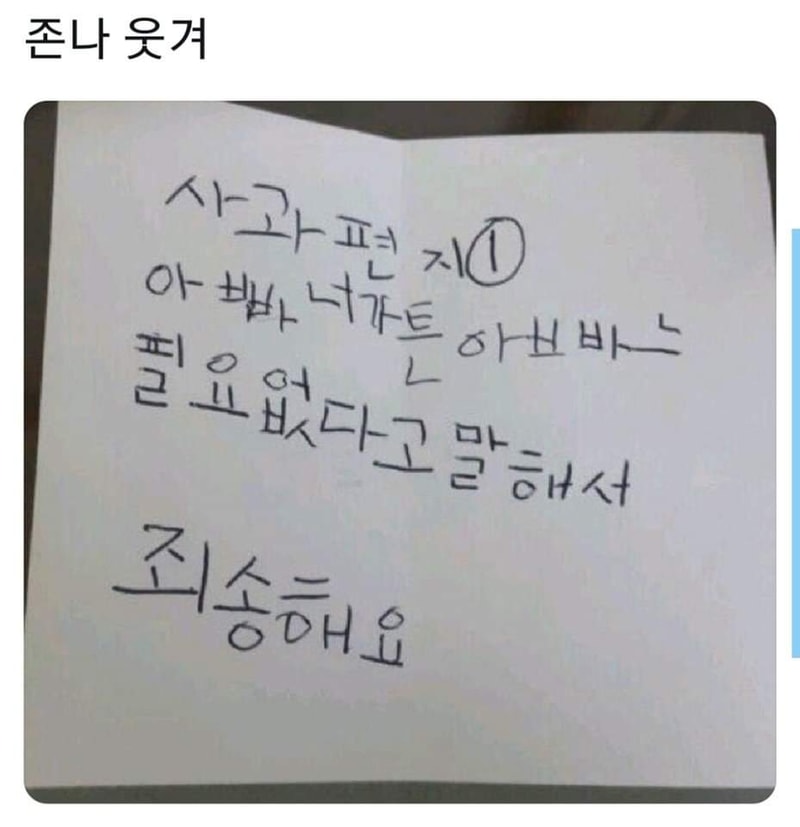 존나 웃겨
사과편지①
아빠 너가튼 아빠는
필요없다고 말해서
죄송해요